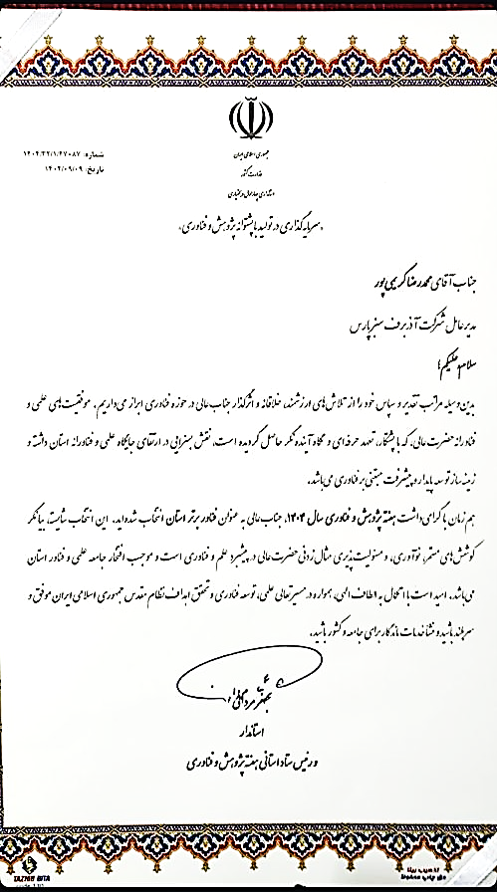 جمهوری اسلامی ایران
وزارت کشور
استانداری چهارمحال و بختیاری
شماره: ۱۴۰۴،۳۲/۱/۴۷۰۸۷
تاریخ: ۱۴۰۴/۰۹/۰۹
«سرمایه‌گذاری در تولید با پشتوانه پژوهش و فناوری»
جناب آقای محمدرضا کریمی پور
مدیرعامل شرکت آذربرف سبز پارس
سلام علیکم؛
بدین وسیله مراتب تقدیر و سپاس خود را از تلاش‌های ارزشمند، خلاقانه و اثرگذار جناب عالی در حوزه فناوری ابراز می‌داریم. موفقیت‌های علمی و
فناورانه حضرت عالی، که با پشتکار، تعهد حرفه‌ای و نگاه آینده نگر حاصل گردیده است، نقش بسزایی در ارتقای جایگاه علمی و فناورانه استان داشته و
زمینه ساز توسعه پایدار و پیشرفت مبتنی بر فناوری می‌باشد.
هم زمان با گرامی‌داشت هفته پژوهش و فناوری سال ۱۴۰۴، جناب عالی به عنوان فناور برتر استان انتخاب شده‌اید. این انتخاب شایسته، بیانگر
کوشش‌های مستمر، نوآوری، و مسئولیت پذیری مثال زدنی حضرت عالی در پیشبرد علم و فناوری است و موجب افتخار جامعه علمی و فناور استان
می‌باشد. امید است با اتکال به الطاف الهی، همواره در مسیر تعالی علمی، توسعه فناوری و تحقق اهداف نظام مقدس جمهوری اسلامی ایران موفق و
سربلند باشید و منشأ خدمات ماندگار برای جامعه و کشور باشید.
استاندار
و رئیس ستاد استانی هفته پژوهش و فناوری
TAZHIB BITA
تذهیب بیتا
حق چاپ محفوظ